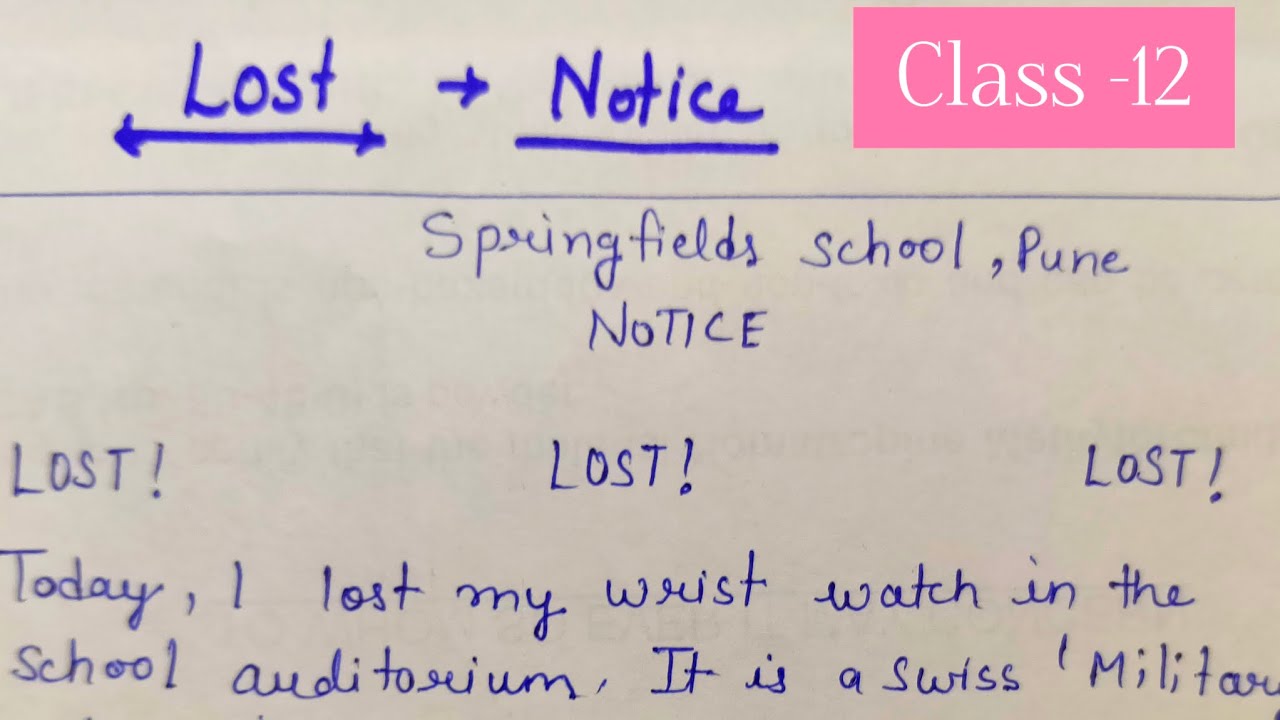 Lost → Notice
Class -12
Springfields school, Pune
NOTICE
LOST! LOST! LOST!
Today, I lost my wrist watch in the
school auditorium. It is a swiss 'Military